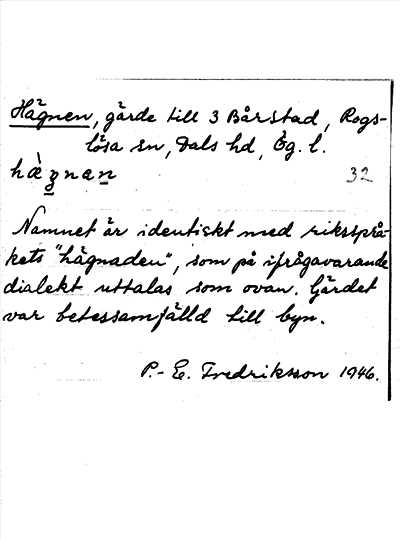 Hägnen, gärde till 3 Bårstad, Rogs-
lösa sn, Dals hd, Ög. l.
32
Namnet är identiskt med rikssprå-
kets "hägnaden", som på ifrågavarande
dialekt uttalas som ovan. Gärdet
var betessamfälld till byn.
P.-E. Fredriksson 1946.